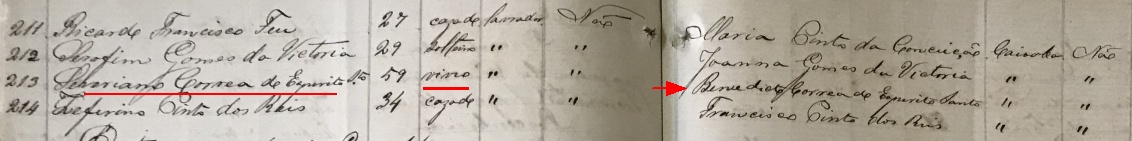 211 Ricardo Francisco Feu 27 cazado Lavrador Não Maria Pinto da Conceição Não
212 Serafim Gomes da Victoria 29 solteiro " " Joanna Gomes da Victoria " "
213 Correa de Espirito Sto 59 viuvo " " Benedicto Correa de Espirito Santo " "
214 Zeferino Pinto dos Reis 34 cazado " " Francisco Pinto dos Reis " "